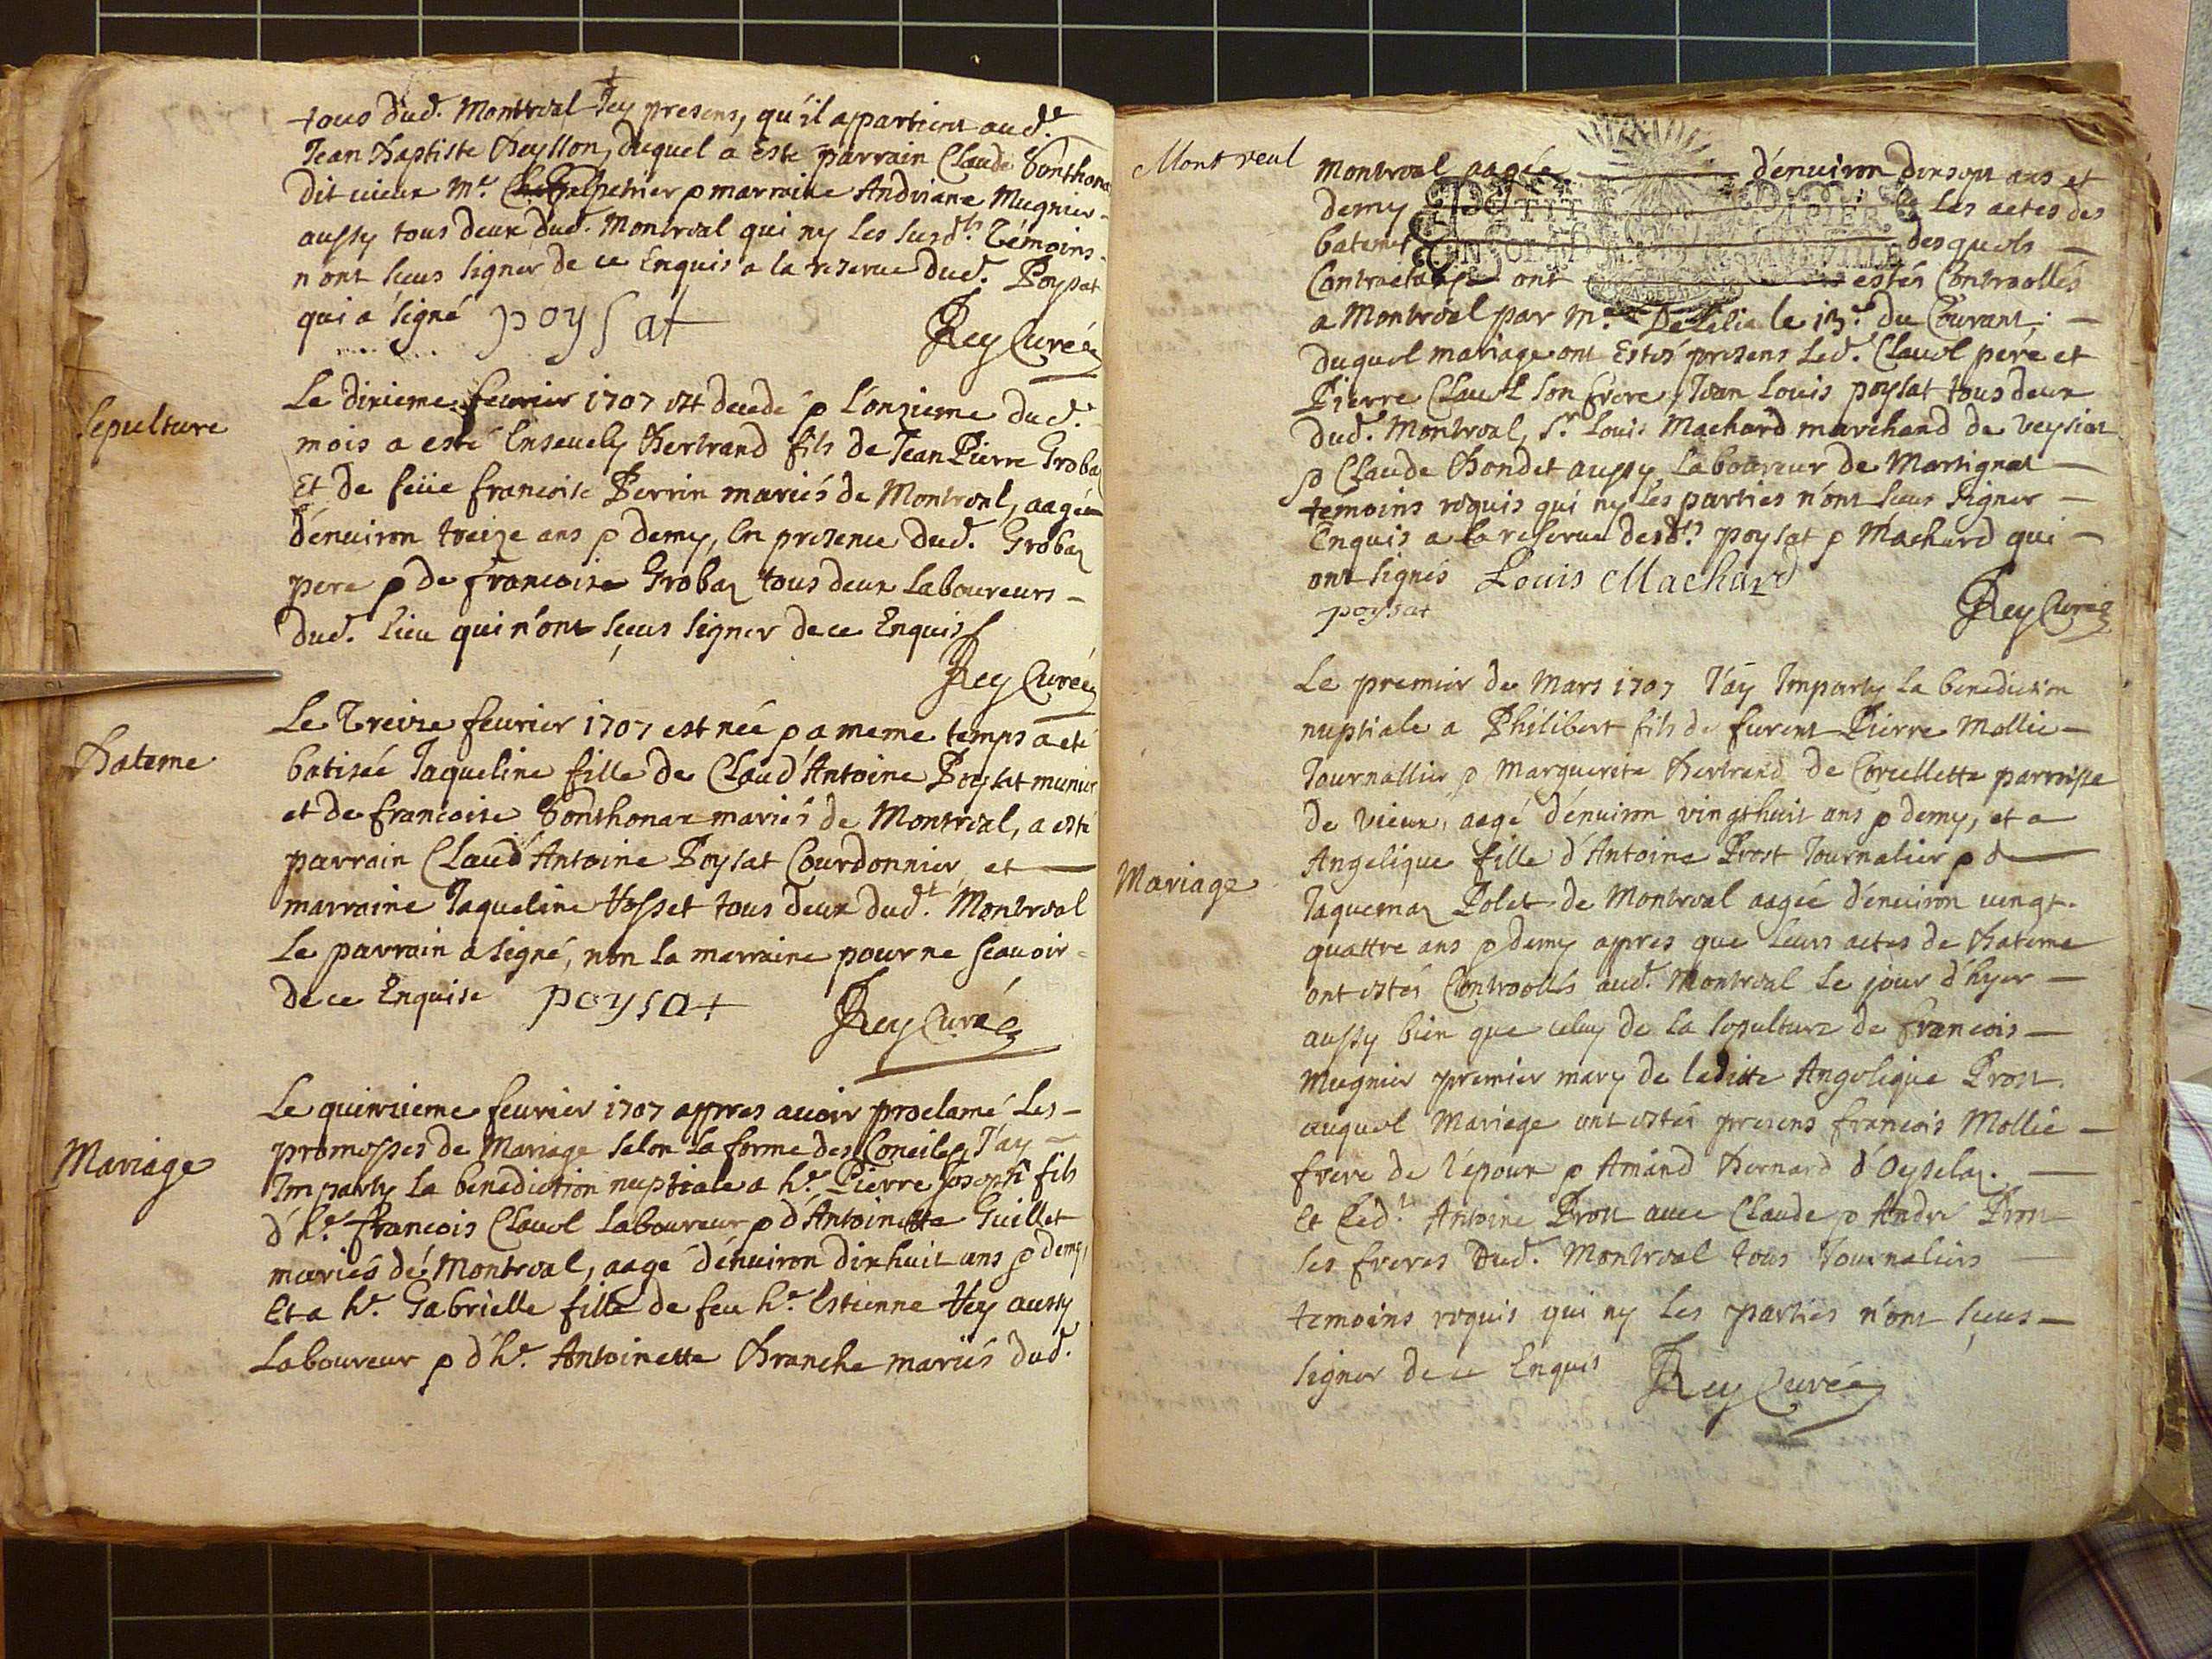 tous dud. Montreal Icy presens, qu'il apartient aud.t
Jean Baptiste Beyllon, duquel a esté parrain Claude Bonthona
dit vieux M.e Charpentier & marraine Andriane Mugnier
aussy tous deux dud. Montreal qui ny les susd.ts Témoins
n'ont sceus signer de ce Enquis a la reserve dud. Poysat
qui a signé poysat
Rey Curé
Sepulture
Le dixieme fevrier 1707 est decedé & l'onzieme dud.
mois a esté Ensevely Bertrand fils de Jean Pierre Groba
Et de feüe francoise Perrin mariés de Montreal, aagé
d'environ treize ans & demy, En presence dud. Grobaz
pere & de francoise Grobaz tous deux Laboureurs
dud. lieu qui n'ont sceus signer de ce Enquis
Rey Curé
Bateme
Le Treize fevrier 1707 est née & a meme temps a eté
batisée Jaqueline fille de Claud'Antoine Poysat munier
et de francoise Bonthonax mariés de Montreal, a esté
parrain Claud'Antoine Poysat Courdonnier et
marraine Jaqueline Hosset tous deux dud.t Montreal
Le parrain a signé, non la marraine pour ne scavoir
de ce Enquise poysat
Rey Curé
Mariage
Le quinzieme fevrier 1707 appres avoir proclamé Les
promesses de Mariage selon la forme des Conciles J'ay
Imparty la benediction nuptiale a h.e Pierre Joseph fils
d'h.e francois Clavel Laboureur & d'Antoinette Guillet
mariés de Montreal, aagé d'environ dixhuit ans & demy,
Et a h.e Gabrielle fille de feu h.e Estienne Hey aussy
Laboureur & d'h.e Antoinette Branche mariés dud.
Montreal
Montreal aagée d'environ dixsept ans et
demy Les actes des
batemes desquels
Contractans ont estés Controollés
a Montreal par M.e Delelia le 13.e du Courant,
duquel mariage ont Estés presens Led. Clavel pere et
Pierre Clavel son frere, Jean Louis poysat tous deux
dud. Montreal, S.r Louis Machard marchand de Veysiat
& Claude Bondet aussy Laboureur de Martignat
temoins requis qui ny Les parties n'ont sceus signer
Enquis a la reserve desd.ts poysat & Machard qui
ont signés Louis Machard
poysat
Rey Curé
Mariage
Le premier de Mars 1707 J'ay Imparty La benediction
nuptiale a Philibert fils de furent Pierre Mollie
Journallier & Marguerite Bertrand de Corcellette parroisse
de Vieux, aagé d'environ vingthuit ans & demy, et a
Angelique fille d'Antoine Prost Journalier & d
Jaquemaz Polet de Montreal aagée d'environ vingt
quattre ans & demy appres que leurs actes de Bateme
ont estés Controollés aud. Montreal Le jour d'hyer
aussy bien que celuy de la sepulture de francois
Mugnier premier mary de laditte Angelique Prost
auquel Mariage ont estés presens francois Mollie
frere de l'epoux & Amand Bernard d'Oyselaz.
Et Led.t Antoine Prost avec Claude & André Prost
ses freres Dud. Montreal tous Journaliers
temoins requis qui ny Les parties n'ont sceus
signer de ce Enquis Rey Curé